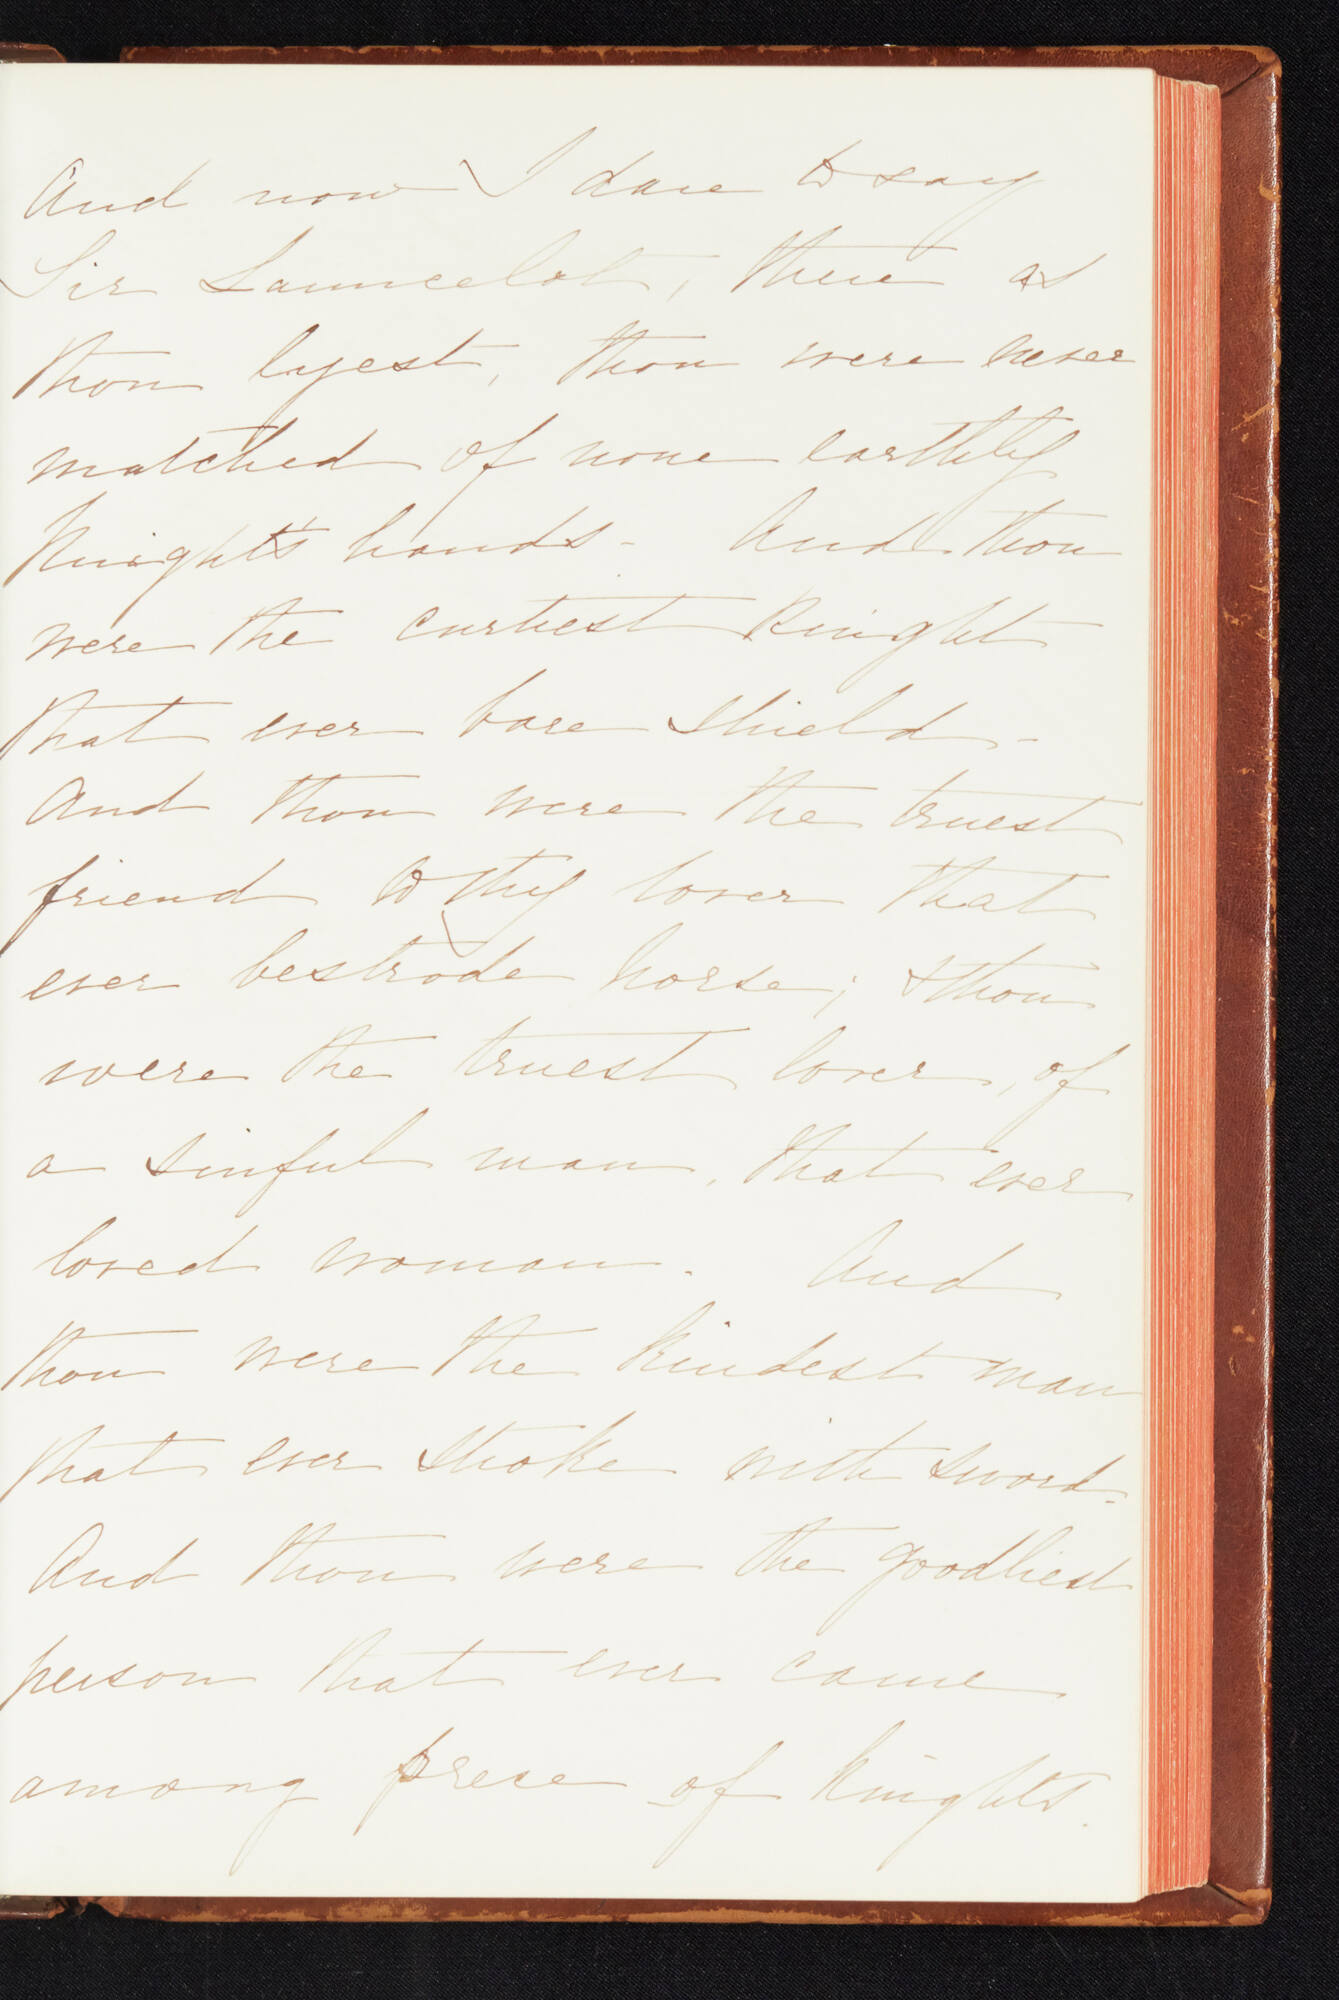 And now I dare to say
Sir Launcelot, there as
thou lyest, thou were never
matched of none earthly
Knight's hands - And thou
were the curtiest Knight
that ever bare shield -
And thou were the truest
friend to thy lover that
ever bestrode horse; & thou
were the truest lover, of
a sinful man, that ever
loved woman. And
thou were the kindest man
that ever stroke with sword.
And thou were the goodliest
person that ever came
among prese of Knights.